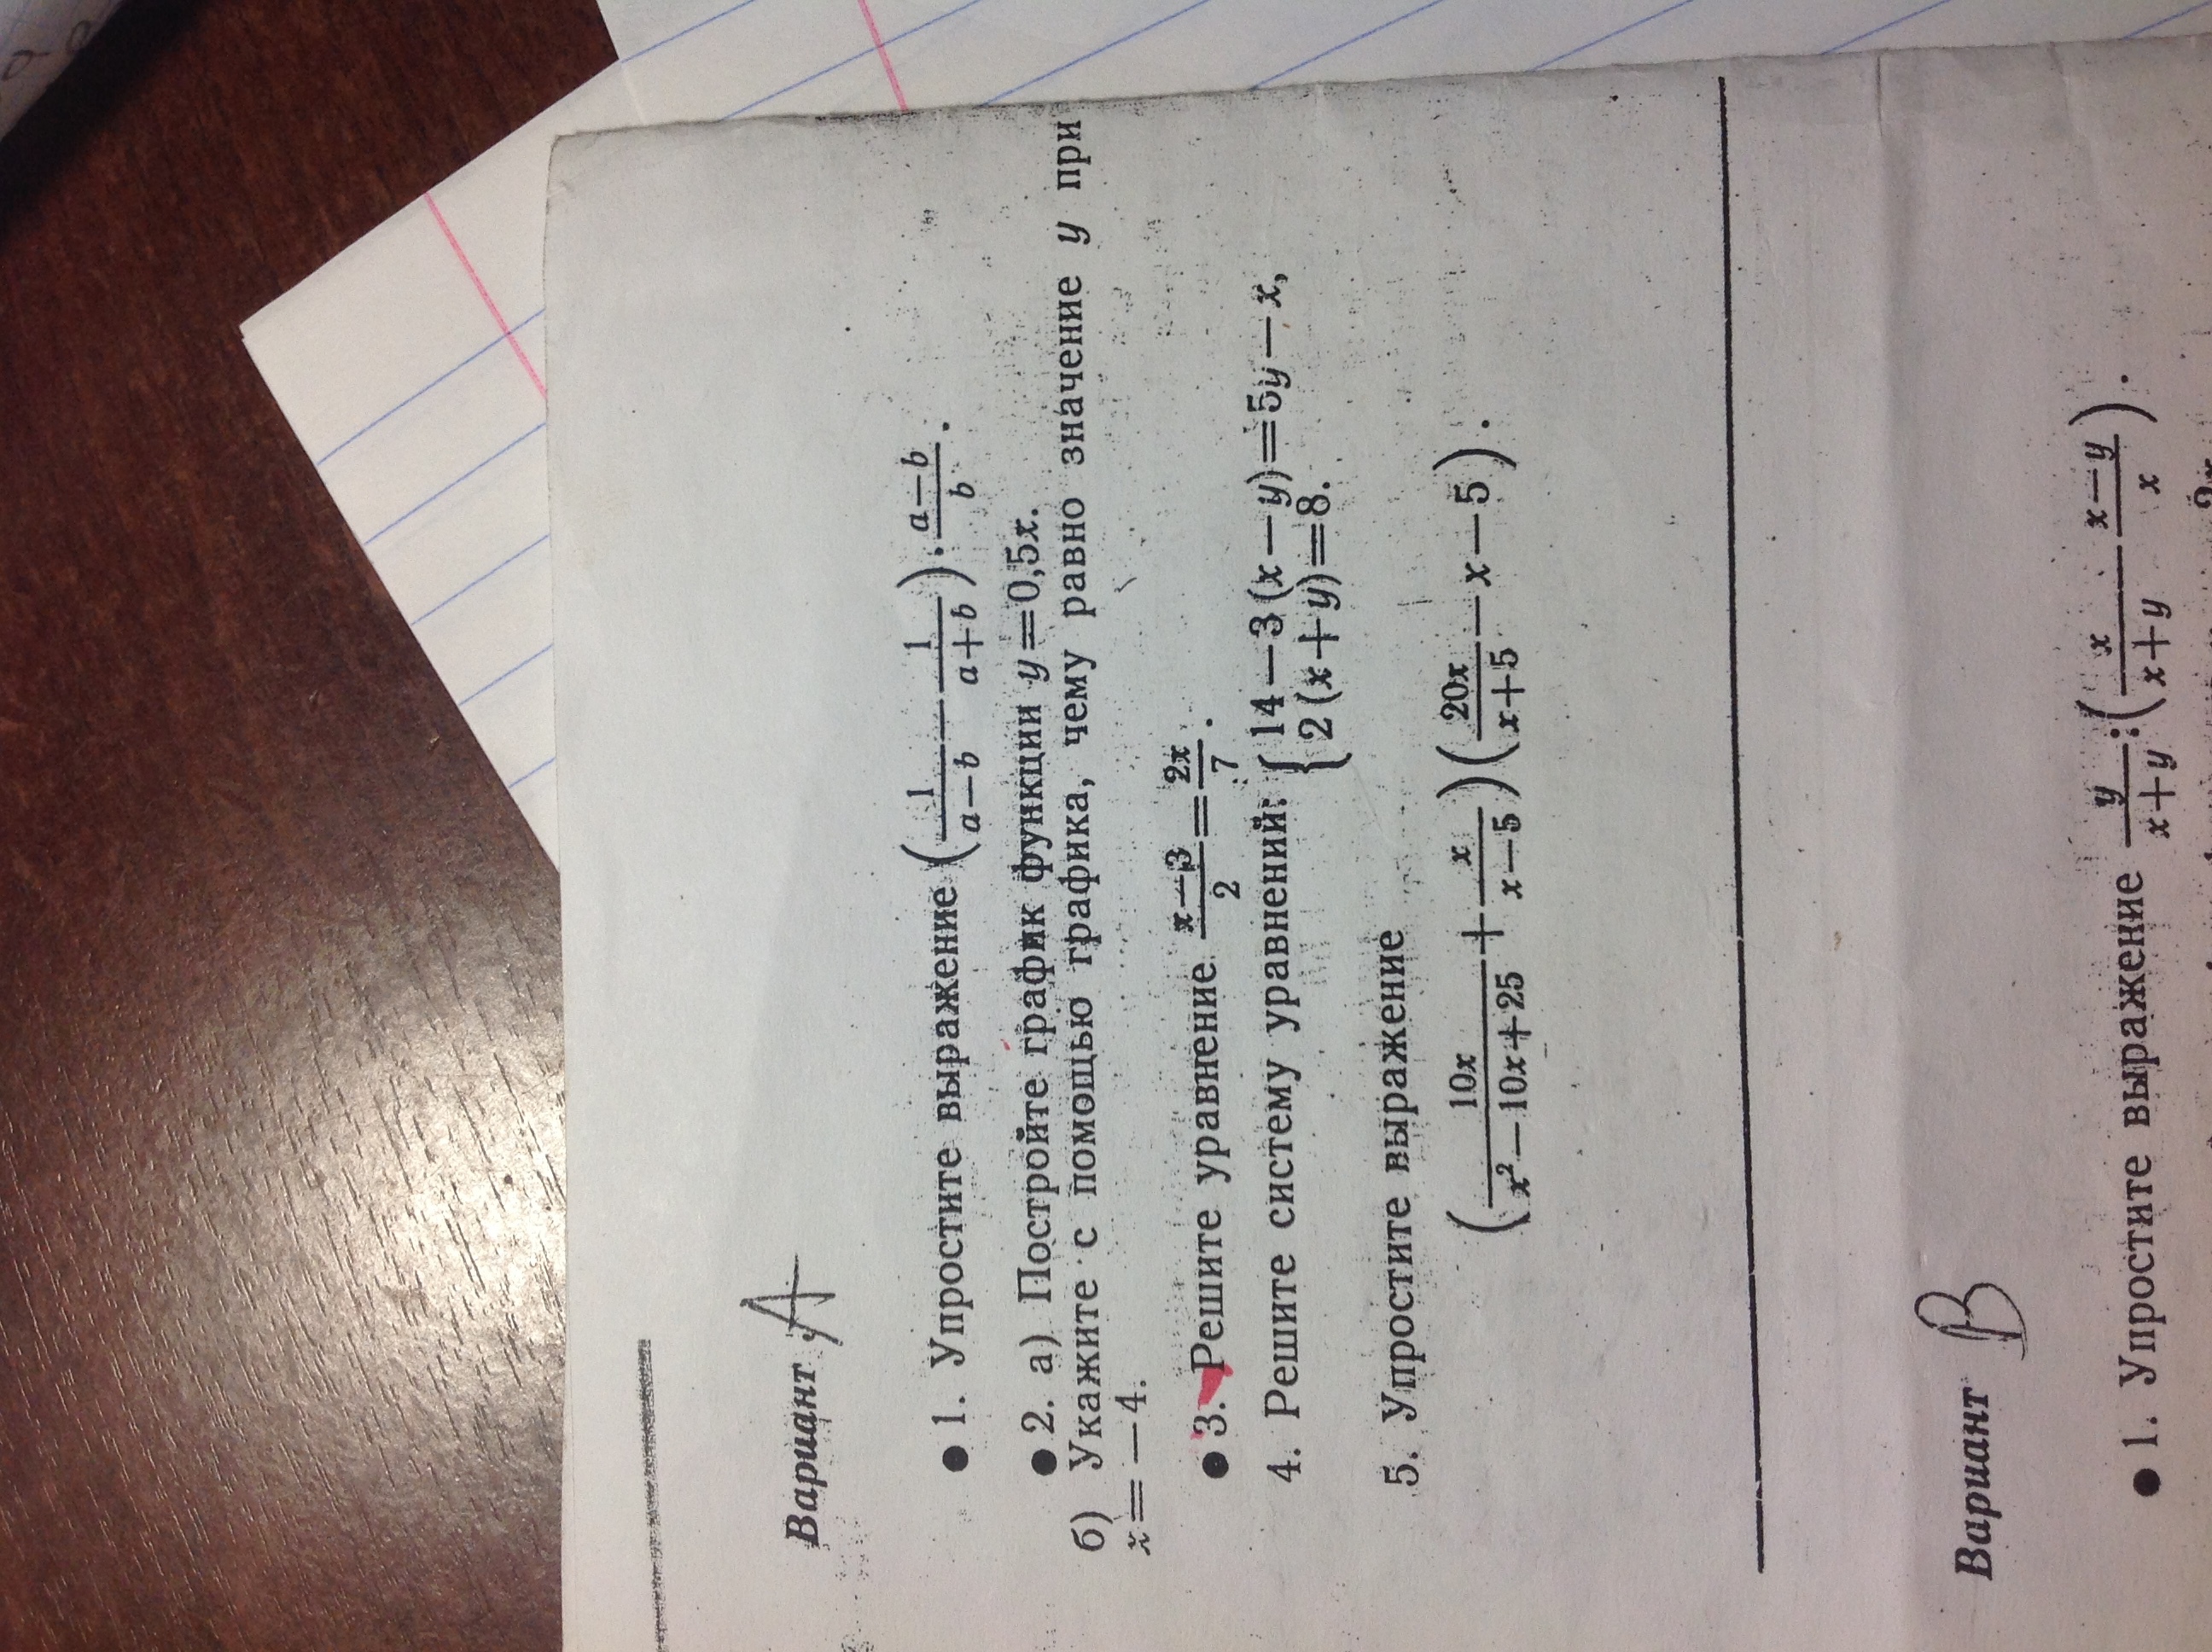 Вариант A
● 1. Упростите выражение (1/(a−b) − 1/(a+b)) · (a−b)/b.
● 2. а) Постройте график функции y=0,5x.
б) Укажите с помощью графика, чему равно значение y при
x=−4.
● 3. Решите уравнение (x−3)/2 = 2x/7.
4. Решите систему уравнений: {14−3(x−y)=5y−x,
2(x+y)=8.
5. Упростите выражение
(10x/(x²−10x+25) + x/(x−5)) (20x/(x+5) − x−5).
Вариант B
● 1. Упростите выражение y/(x+y) : (x/(x+y) − (x−y)/x).